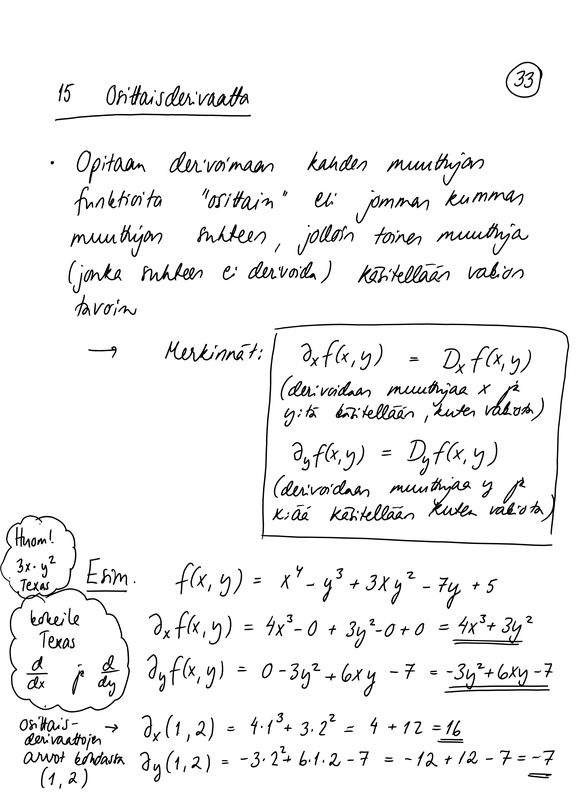 33
15 Osittaisderivaatta
• Opitaan derivoimaan kahden muuttujan
funktioita "osittain" eli jomman kumman
muuttujan suhteen, jolloin toinen muuttuja
(jonka suhteen ei derivoida) käsitellään vakion
tavoin
→ Merkinnät:
∂ₓf(x,y) = Dₓf(x,y)
(derivoidaan muuttujaa x ja
y:tä käsitellään, kuten vakiota)
∂ᵧf(x,y) = Dᵧf(x,y)
(derivoidaan muuttujaa y ja
x:ää käsitellään kuten vakiota)
Huom!
3x·y²
Texas
Esim. f(x,y) = x⁴ - y³ + 3xy² - 7y + 5
kokeile
Texas
d/dx ja d/dy
∂ₓf(x,y) = 4x³ - 0 + 3y² - 0 + 0 = 4x³ + 3y²
∂ᵧf(x,y) = 0 - 3y² + 6xy - 7 = -3y² + 6xy - 7
osittais-
derivaattojen
arvot kohdassa
(1,2)
→ ∂ₓ(1,2) = 4·1³ + 3·2² = 4 + 12 = 16
∂ᵧ(1,2) = -3·2² + 6·1·2 - 7 = -12 + 12 - 7 = -7